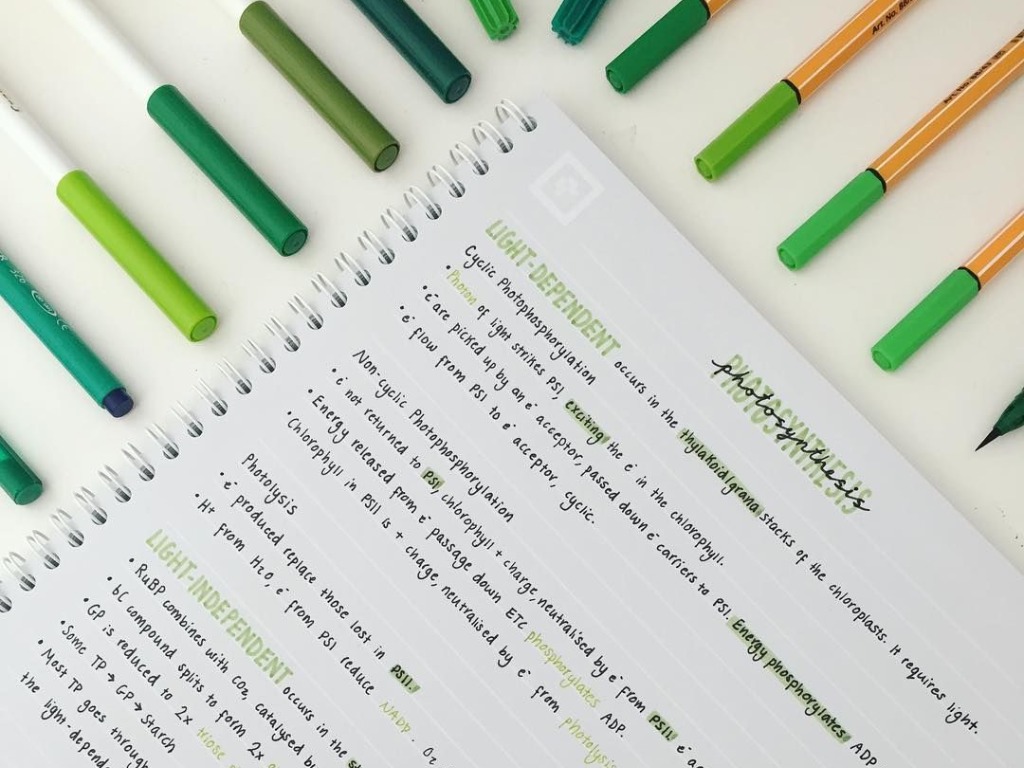 PHOTOSYNTHESIS
photosynthesis
LIGHT-DEPENDENT occurs in the thylakoid/grana stacks of the chloroplasts. It requires light.
Cyclic Photophosphorylation
• Photon of light strikes PSI, exciting the e⁻ in the chlorophyll.
• e⁻ are picked up by an e⁻ acceptor, passed down e⁻ carriers to PSI. Energy phosphorylates ADP
• e⁻ flow from PSI to e⁻ acceptor, cyclic.
Non-cyclic Photophosphorylation
• e⁻ not returned to PSI, chlorophyll + charge, neutralised by e⁻ from PSII, e⁻
• Energy released from e⁻ passage down ETC phosphorylates ADP.
• Chlorophyll in PSII is + charge, neutralised by e⁻ from photolysis
Photolysis
• e⁻ produced replace those lost in PSII.
• H+ from H2O, e⁻ from PSI reduce NADP. O2
LIGHT-INDEPENDENT occurs in the
• RuBP combines with CO2, catalysed
• 6C compound splits to form 2x
• GP is reduced to 2x
• Some TP → GP → Starch
• Most TP goes through
the light-depend
Art. No. 88